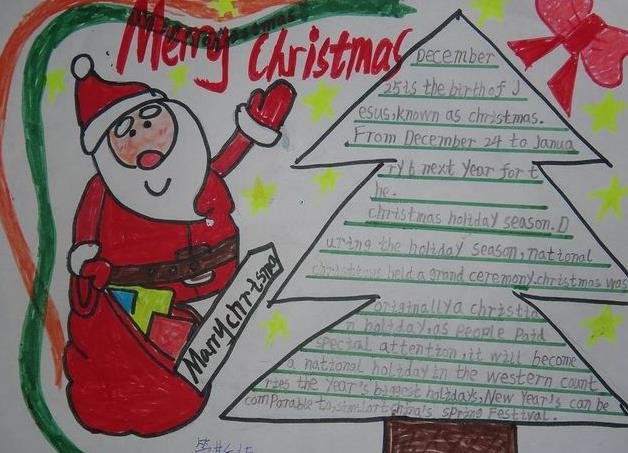 Merry Christmas
December
25is the birth of J
esus,known as christmas.
From December 24 to Janua
ry 6 next year for t
he.
christmas holiday season.D
uring the holiday season,national
christians held a grand ceremony.christmas was
originally a christia
n holiday,as people paid
special attention,it will become
a national holiday in the western count
ries the year's biggest holidays,New Year's can be
comparable to,similar china's spring Festival.
Marry christma